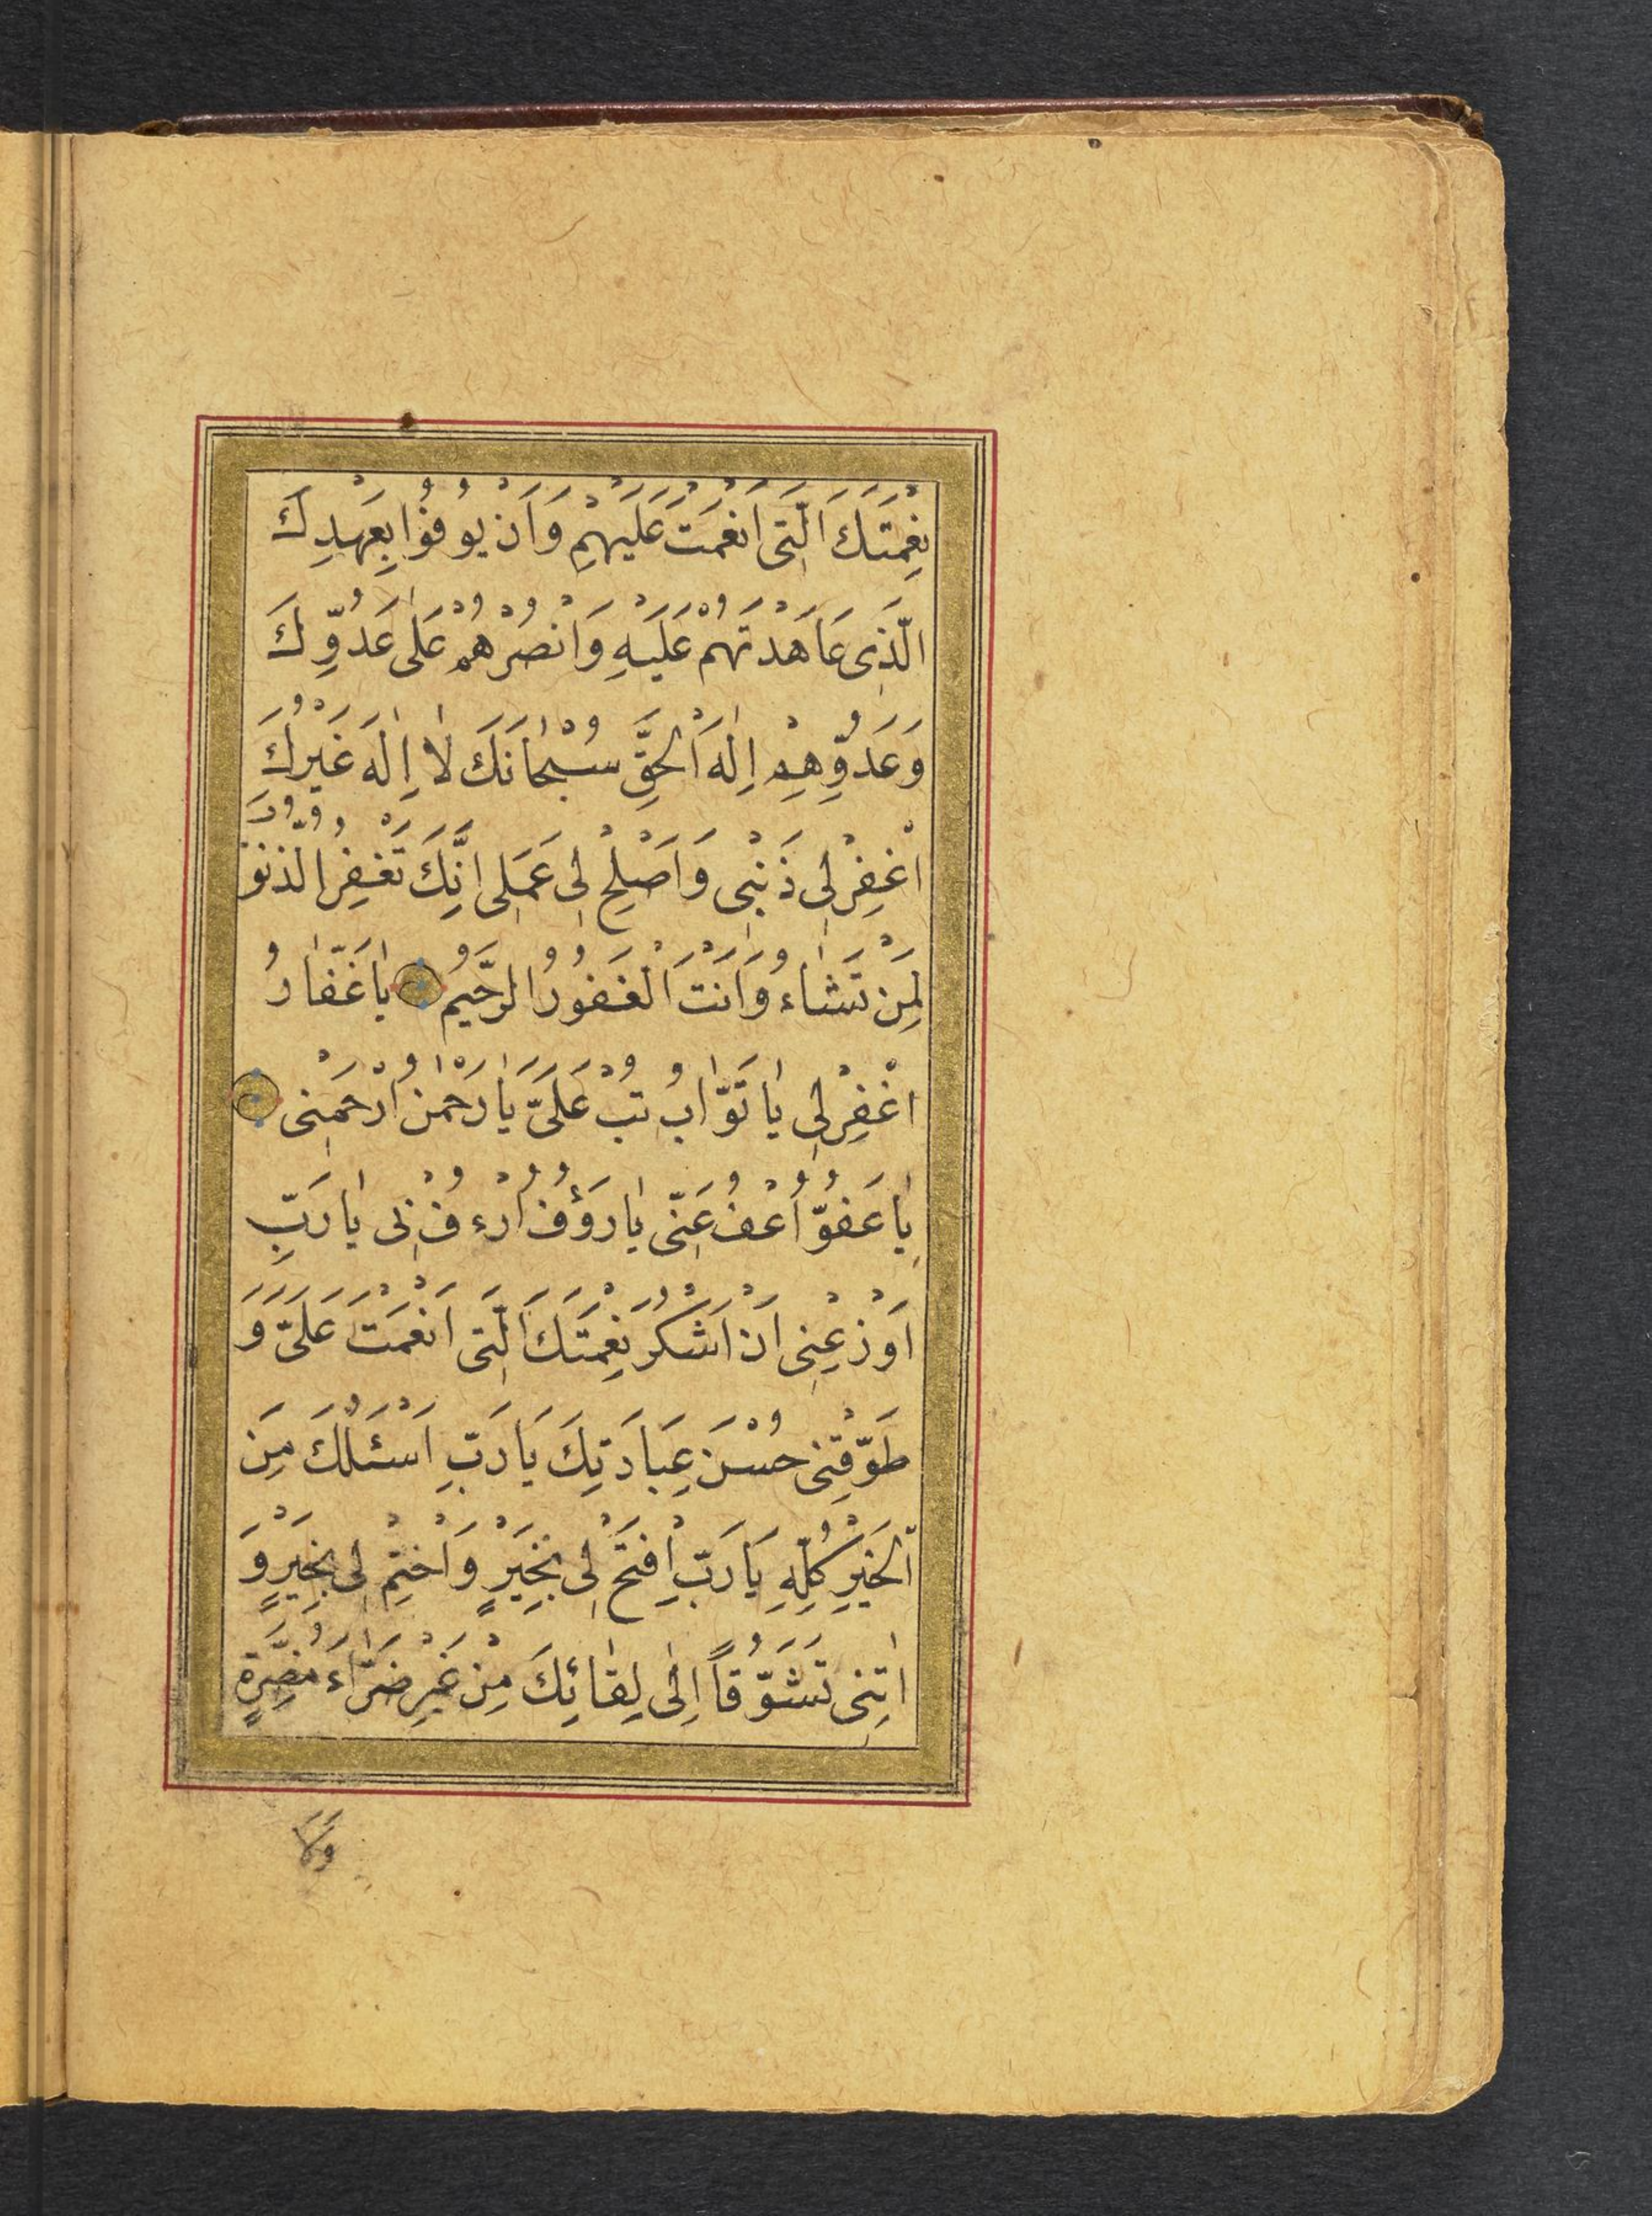 نِعْمَتَكَ الَّتِى اَنْعَمْتَ عَلَيْهِمْ وَاَنْ يُوفُوا بِعَهْدِكَ
الَّذِى عَاهَدْتَهُمْ عَلَيْهِ وَانْصُرْهُمْ عَلٰى عَدُوِّكَ
وَعَدُوِّهِمْ اِلٰهَ الْحَقِّ سُبْحَانَكَ لَا اِلٰهَ غَيْرُكَ
اغْفِرْ لِى ذَنْبِى وَاَصْلِحْ لِى عَمَلِى اِنَّكَ تَغْفِرُ الذُّنُوبَ
لِمَنْ تَشَاءُ وَاَنْتَ الْغَفُورُ الرَّحِيمُ يَا غَفَّارُ
اغْفِرْ لِى يَا تَوَّابُ تُبْ عَلَىَّ يَا رَحْمٰنُ ارْحَمْنِى
يَا عَفُوُّ اعْفُ عَنِّى يَا رَؤُفُ ارْءُفْ بِى يَا رَبِّ
اَوْزِعْنِى اَنْ اَشْكُرَ نِعْمَتَكَ الَّتِى اَنْعَمْتَ عَلَىَّ وَ
طَوِّقْنِى حُسْنَ عِبَادَتِكَ يَا رَبِّ اَسْئَلُكَ مِنَ
الْخَيْرِ كُلِّهِ يَا رَبِّ افْتَحْ لِى بِخَيْرٍ وَاخْتِمْ لِى بِخَيْرٍ وَ
اٰتِنِى تَشَوُّقاً اِلٰى لِقَائِكَ مِنْ غَيْرِ ضَرَّاءَ مُضِرَّةٍ
وَلَا